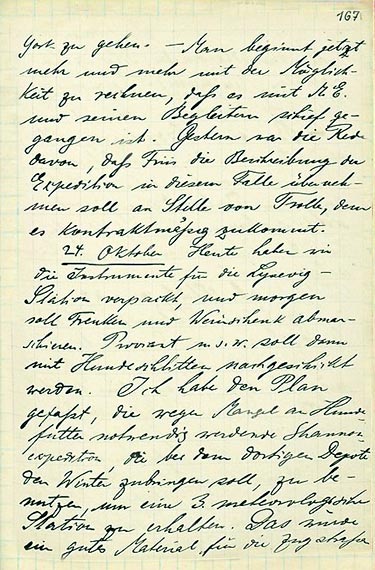 167
York zu gehen. – Man beginnt jetzt
mehr und mehr mit der Möglich-
keit zu rechnen, daß es mit M. E.
und seinen Begleitern schief ge-
gangen ist. Gestern war die Rede
davon, daß Friis die Beschreibung der
Expedition in diesem Falle überneh-
men soll an Stelle von Trolle, dem
es kontraktmäßig zukommt.
24. Oktober Heute haben wir
die Instrumente für die
Station verpackt, und morgen
soll Freuchen und Weinschenk abmar-
schieren. Proviant u.s.w. soll dann
mit Hundeschlitten nachgeschickt
werden. Ich habe den Plan
gefaßt, die wegen Mangel an Hunde-
futter notwendig werdende Shannon-
expedition die bei dem dortigen Depote
den Winter zubringen soll, zu be-
nutzen, um eine 3. meteorologische
Station zu erhalten. Das würde
ein gutes Material für die Zugstraßen